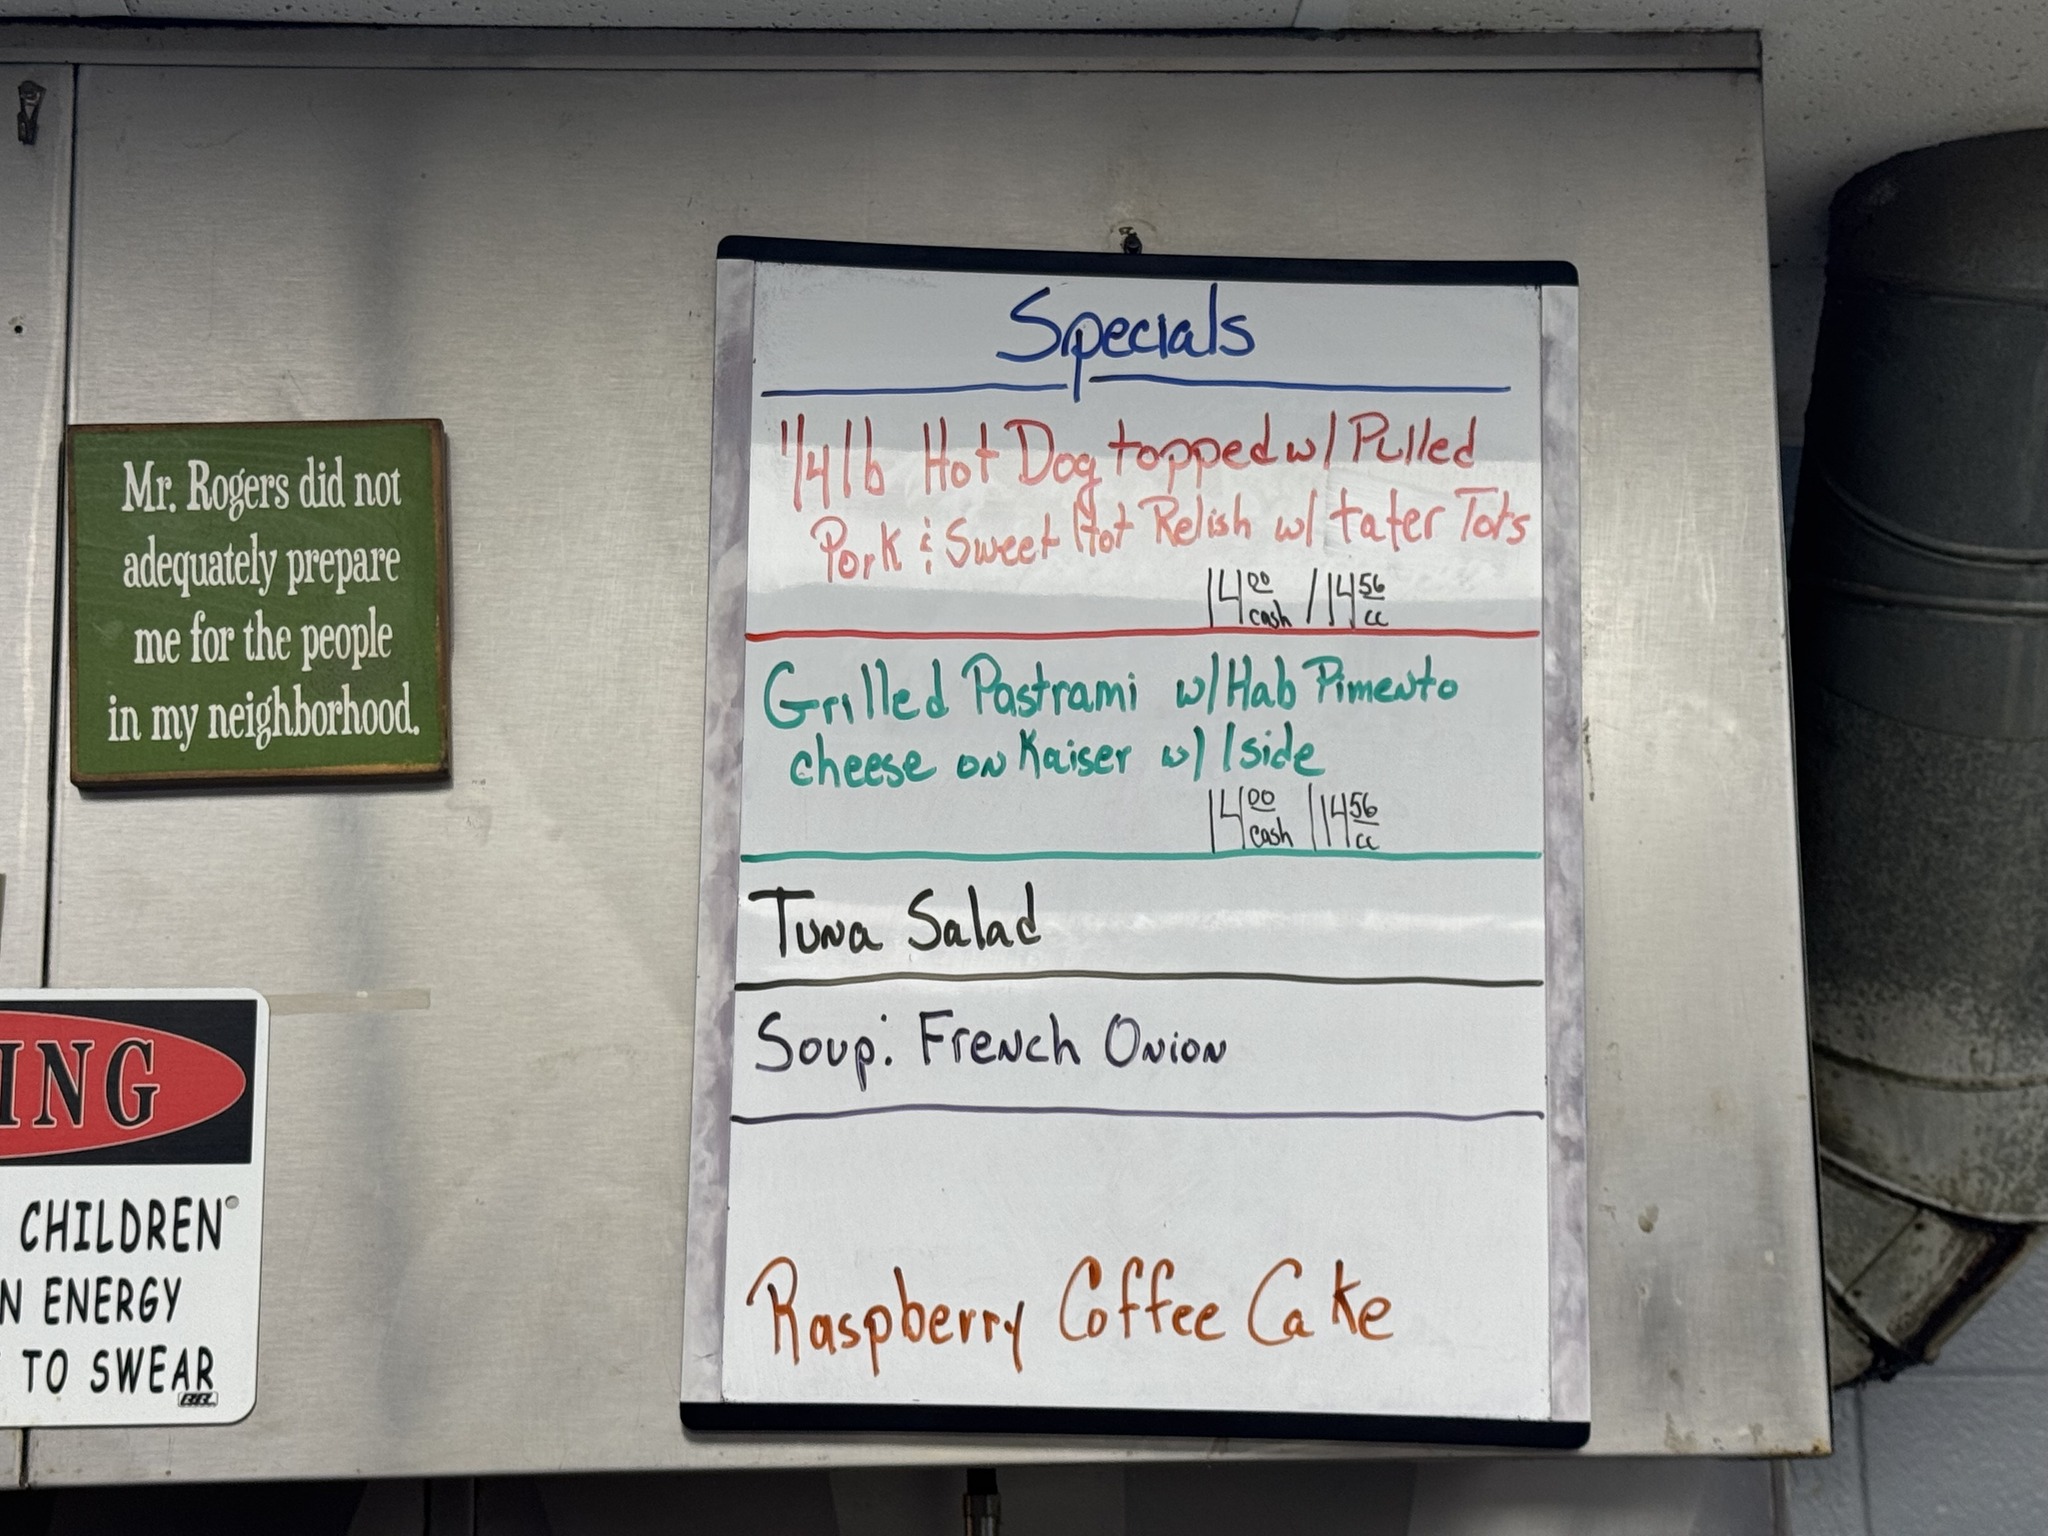 Mr. Rogers did not
adequately prepare
me for the people
in my neighborhood.
ING
CHILDREN
N ENERGY
TO SWEAR
Specials
1/4 lb Hot Dog topped w/ Pulled
Pork & Sweet Hot Relish w/ tater Tots
14.00 cash / 14.56 cc
Grilled Pastrami w/ Hab Pimento
cheese on Kaiser w/ 1 side
14.00 cash / 14.56 cc
Tuna Salad
Soup: French Onion
Raspberry Coffee Cake